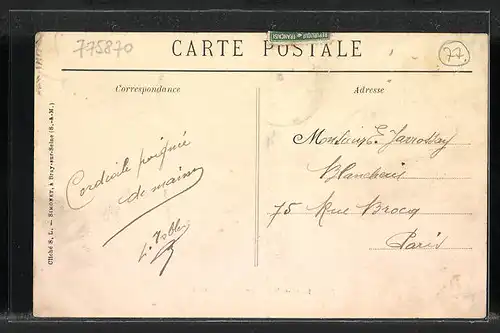 775870
RÉPUBLIQUE FRANÇAISE
CARTE POSTALE
77
Correspondance
Adresse
Cordiale poignée
de main
Monsieur E. Jarrossay
75 Rue Broca
Paris
Cliché S. L. — SIMONET, à Bray-sur-Seine (S.-&-M.)